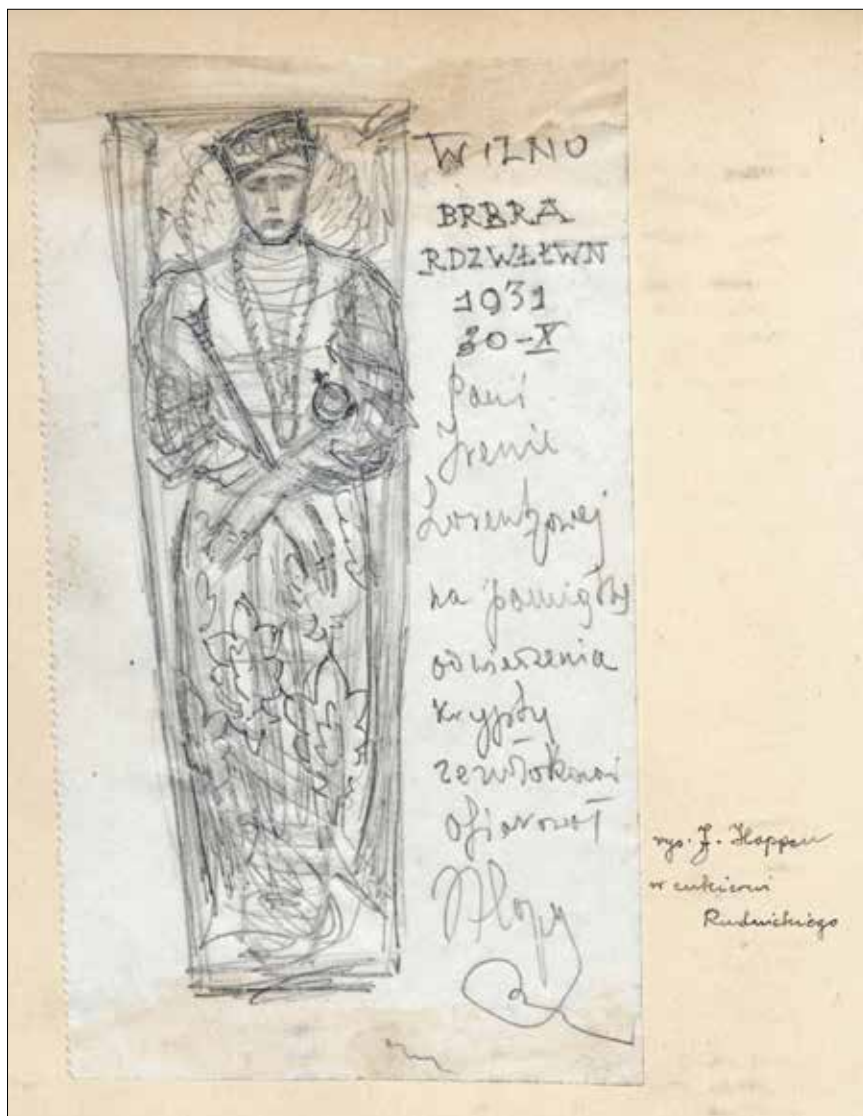 WILNO
BRBRA
RDZWŁŁWN
1931
30-X
Pani
Irenie
Lorentzowej
na pamiątkę
odwiedzenia
krypty
ze zwłokami
ofiarował
rys. J. Hoppen
w cukierni
Rudnickiego